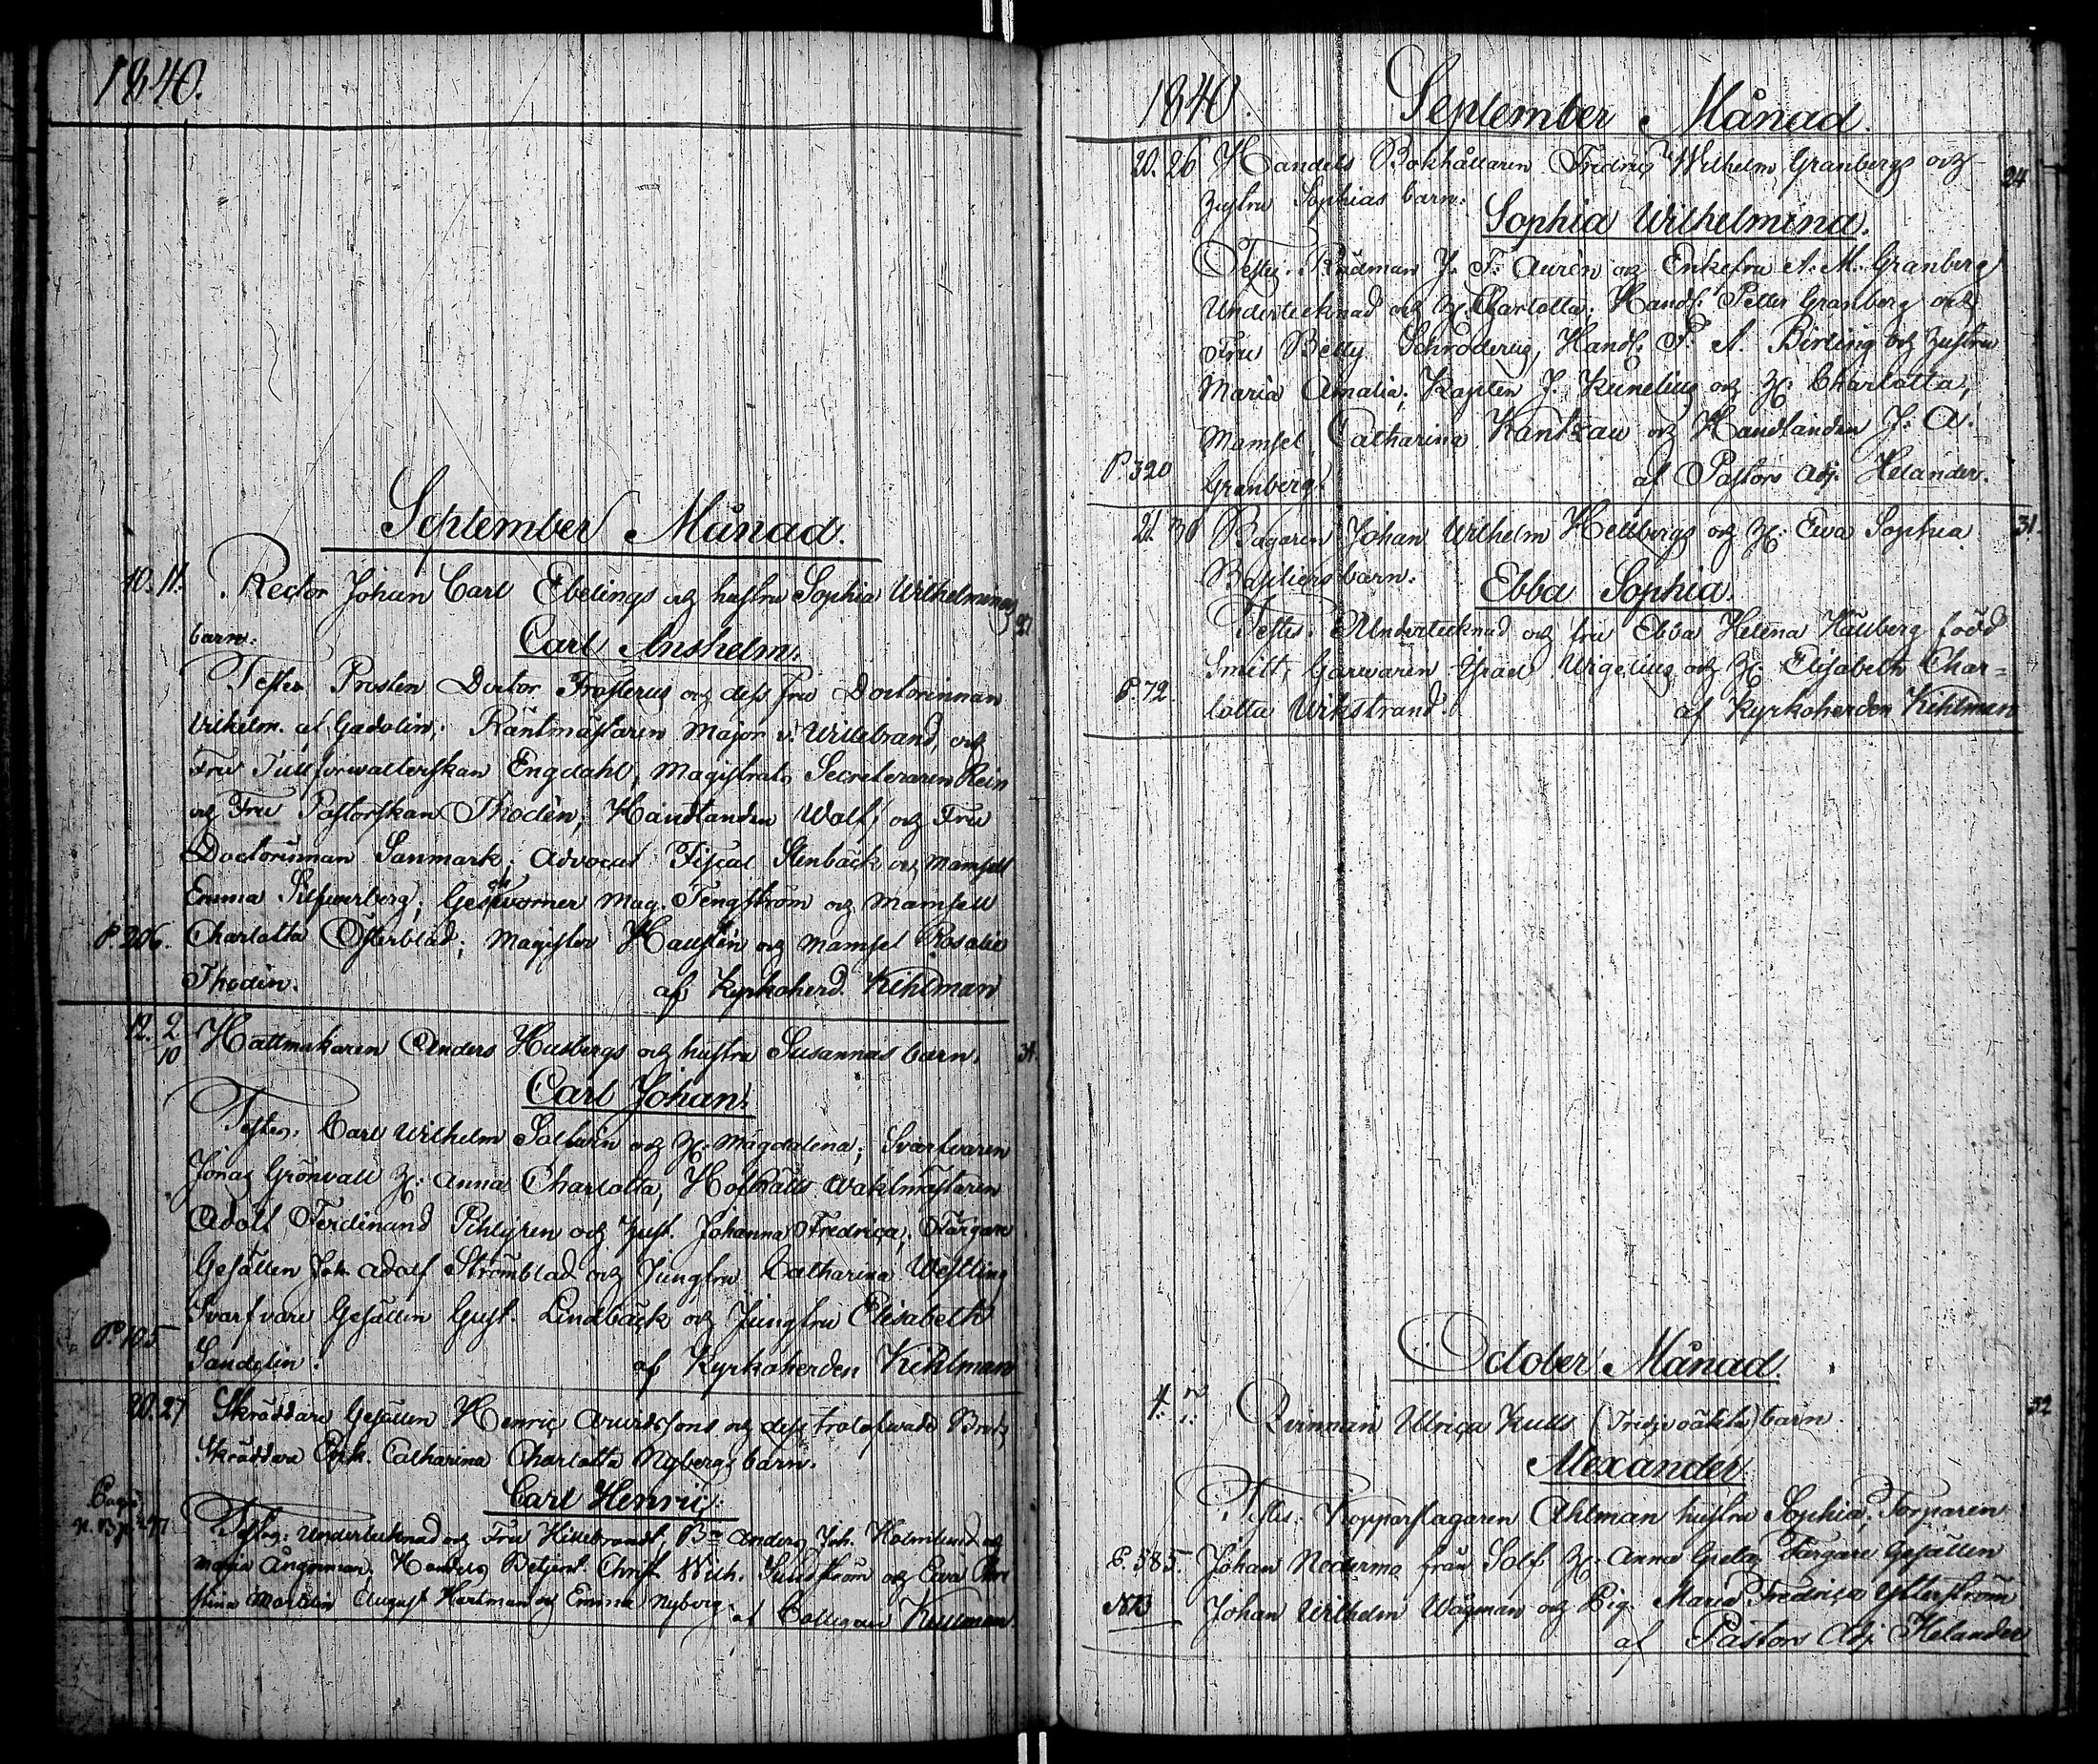 1840.
September Månad.
10. 11. Rector Johan Carl Ebelings och hustru Sophia Wilhelminas 27
barn: Carl Anshelm.
Testes. Prosten Doctor Frosterus och dess fru Doctorinnan
Vilhelm. af Gadolin; Räntmästaren Major v. Willebrand och
Fru Tullförwalterskan Engdahl; Magistrats Secreteraren Rein
och Fru Pastorskan Thodén; Handlanden Wolf och Fru
Doctorinnan Sanmark; Advocat Fiscal Stenbäck och Mamsell
Emma Silfwerberg; Geschworner Mag. Tengström och Mamsell
P. 206. Charlotta Österblad; Magister Haustén och Mamsel Rosalie
Thodén. af Kyrkoherd. Kihlman
12. 2/10 Hattmakaren Anders Husbergs och hustru Susannas barn, 34.
Carl Johan.
Testes: Carl Wilhelm och H: Magdalena; Svarfvaren
Jonas Grönvall H: Anna Charlotta; Hofrätts Waktmästaren
Adolf Ferdinand Pihlgren och Hust. Johanna Fredrica; Färgare
Gesällen Joh. Adolf Strömblad och Jungfru Catharina Westling
Svarfvare Gesällen Gust. Lindbäck och Jungfru Elisabeth
P. 105 Sandelin. af Kyrkoherden Kihlman
20. 27 Skräddare Gesällen Henric Arvidssons och dess trolofwade Bruds
Skräddare Catharina Charlotta Nybergs barn.
Carl Henric.
Testes: Undertecknad och Fru Hildebrandt, Anders Joh. Holmlund och
Maria Ångerman. Handels Betjent Christ. Wilh. Sundström och Ewa Chri
stina August Hartman och Emma Nyberg. af Collegan Kellman.
1840. September Månad.
20. 26 Handels Bokhållaren Fredric Wilhelm Granbergs och 24
hustru Sophias barn: Sophia Wilhelmina.
Testes. Rådman J. F. Aurén och Enkefru A. M. Granberg
Undertecknad och H: Charlotta; Handl. Petter Granberg och
Fru Betty Schroderus, Handl. P. A. Birling och hustru
Maria Amalia; Kapten J. Kunelius och H: Charlotta;
Mamsel Catharina Kantzau och Handlanden J. A.
P. 320 Granberg. af Pastors Adj. Helander.
21. 30 Bagaren Johan Wilhelm Hellbergs och H: Ewa Sophia 31.
Basiliers barn: Ebba Sophia.
Testes. Undertecknad och fru Ebba Helena Hällberg född
Smitt; Garwaren Israel Wigelius och H: Elisabeth Char=
P. 72. lotta Wikstrand. af Kyrkoherden Kihlman
October Månad.
1. Qvinnan Ulrica Kulls (Tredje oäkta) barn. 32
Alexander
Testes. Kopparslagaren Ahlman hustru Sophia; Torparen
P. 585. Johan från Solf H: Anna Greta; Färgare Gesällen
Johan Wilhelm Wägman och Pig. Maria Fredrica Ytterström
af Pastors Adj. Helander